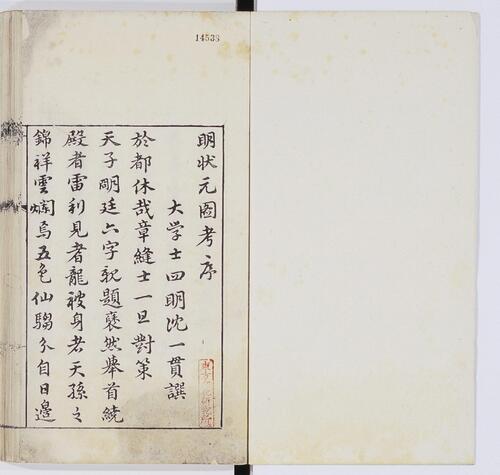 14538
明狀元圖考序
大学士四明沈一貫譔
於都休哉章縫士一旦對策
天子朙廷六字親題褎然舉首繞
殿者雷利見者龍被身者天孫之
錦祥雲爛焉五色仙騶分自日邊